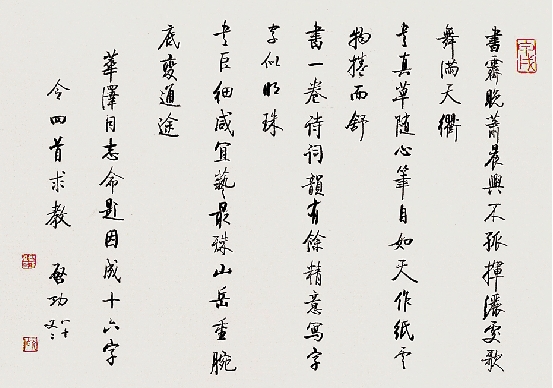 書霽晚蕭晨興不孤揮灑處歌
舞滿天衢
書真草隨心筆自如天作紙雲
物捲而舒
書一卷詩詞韻有餘精意寫字
字似明珠
書巨細咸宜藝最殊山岳重腕
底變通途
華澤同志命題因成十六字
令四首求教 啟功